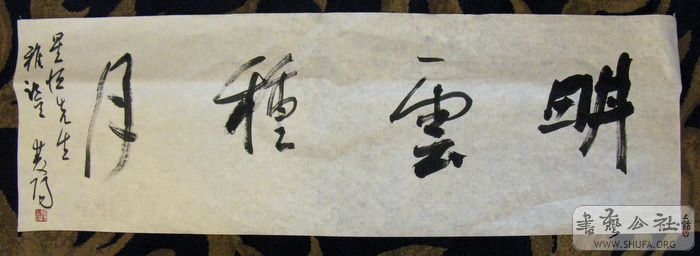 畊雲種月
星恒先生
雅鑒
書藝公社
WWW.SHUFA.ORG